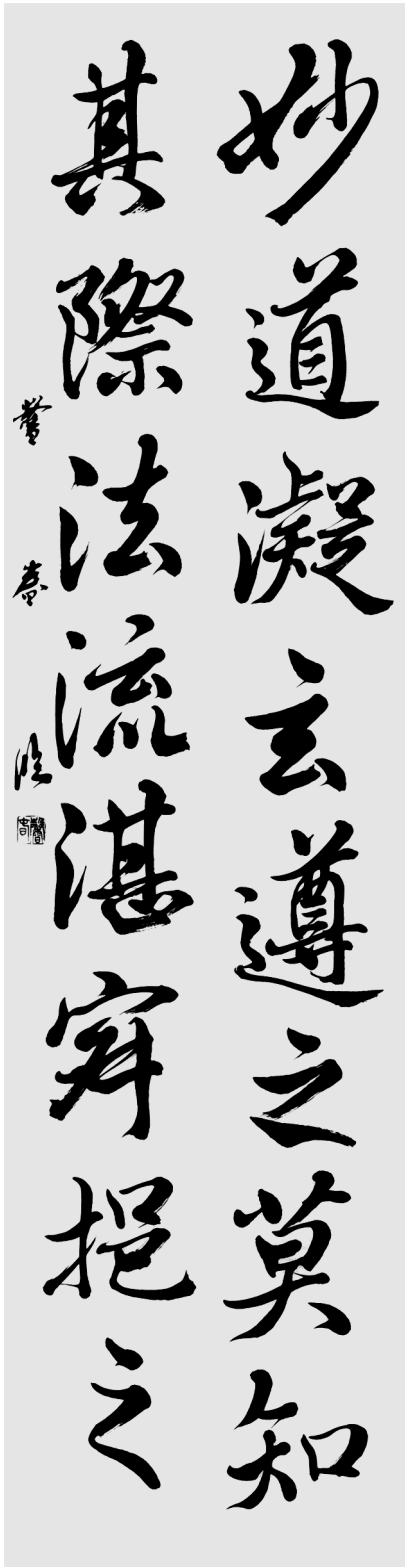 妙道凝玄遵之莫知
其際法流湛寂挹之